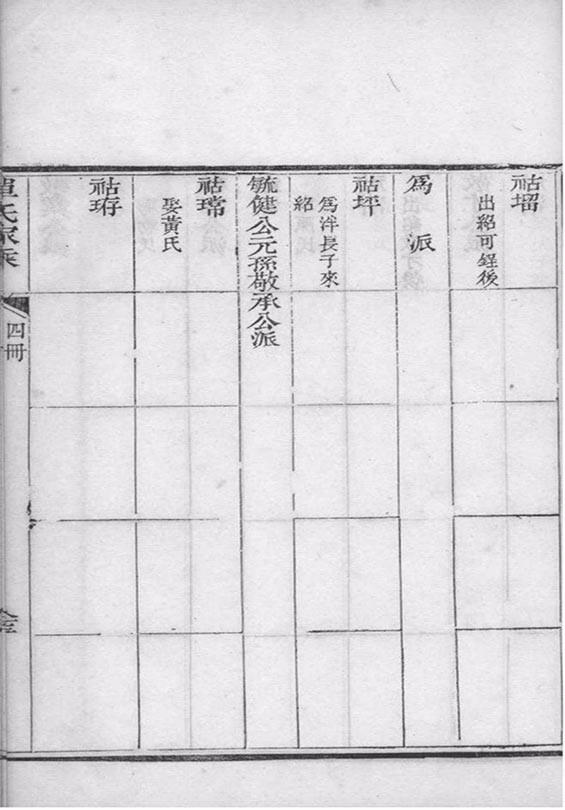 祜塯
出紹可錚後
爲 派
祜坪
爲泮長子來
紹
毓健公元孫敬承公派
祜瑺
娶黃氏
祜珔
氏家乘
四冊